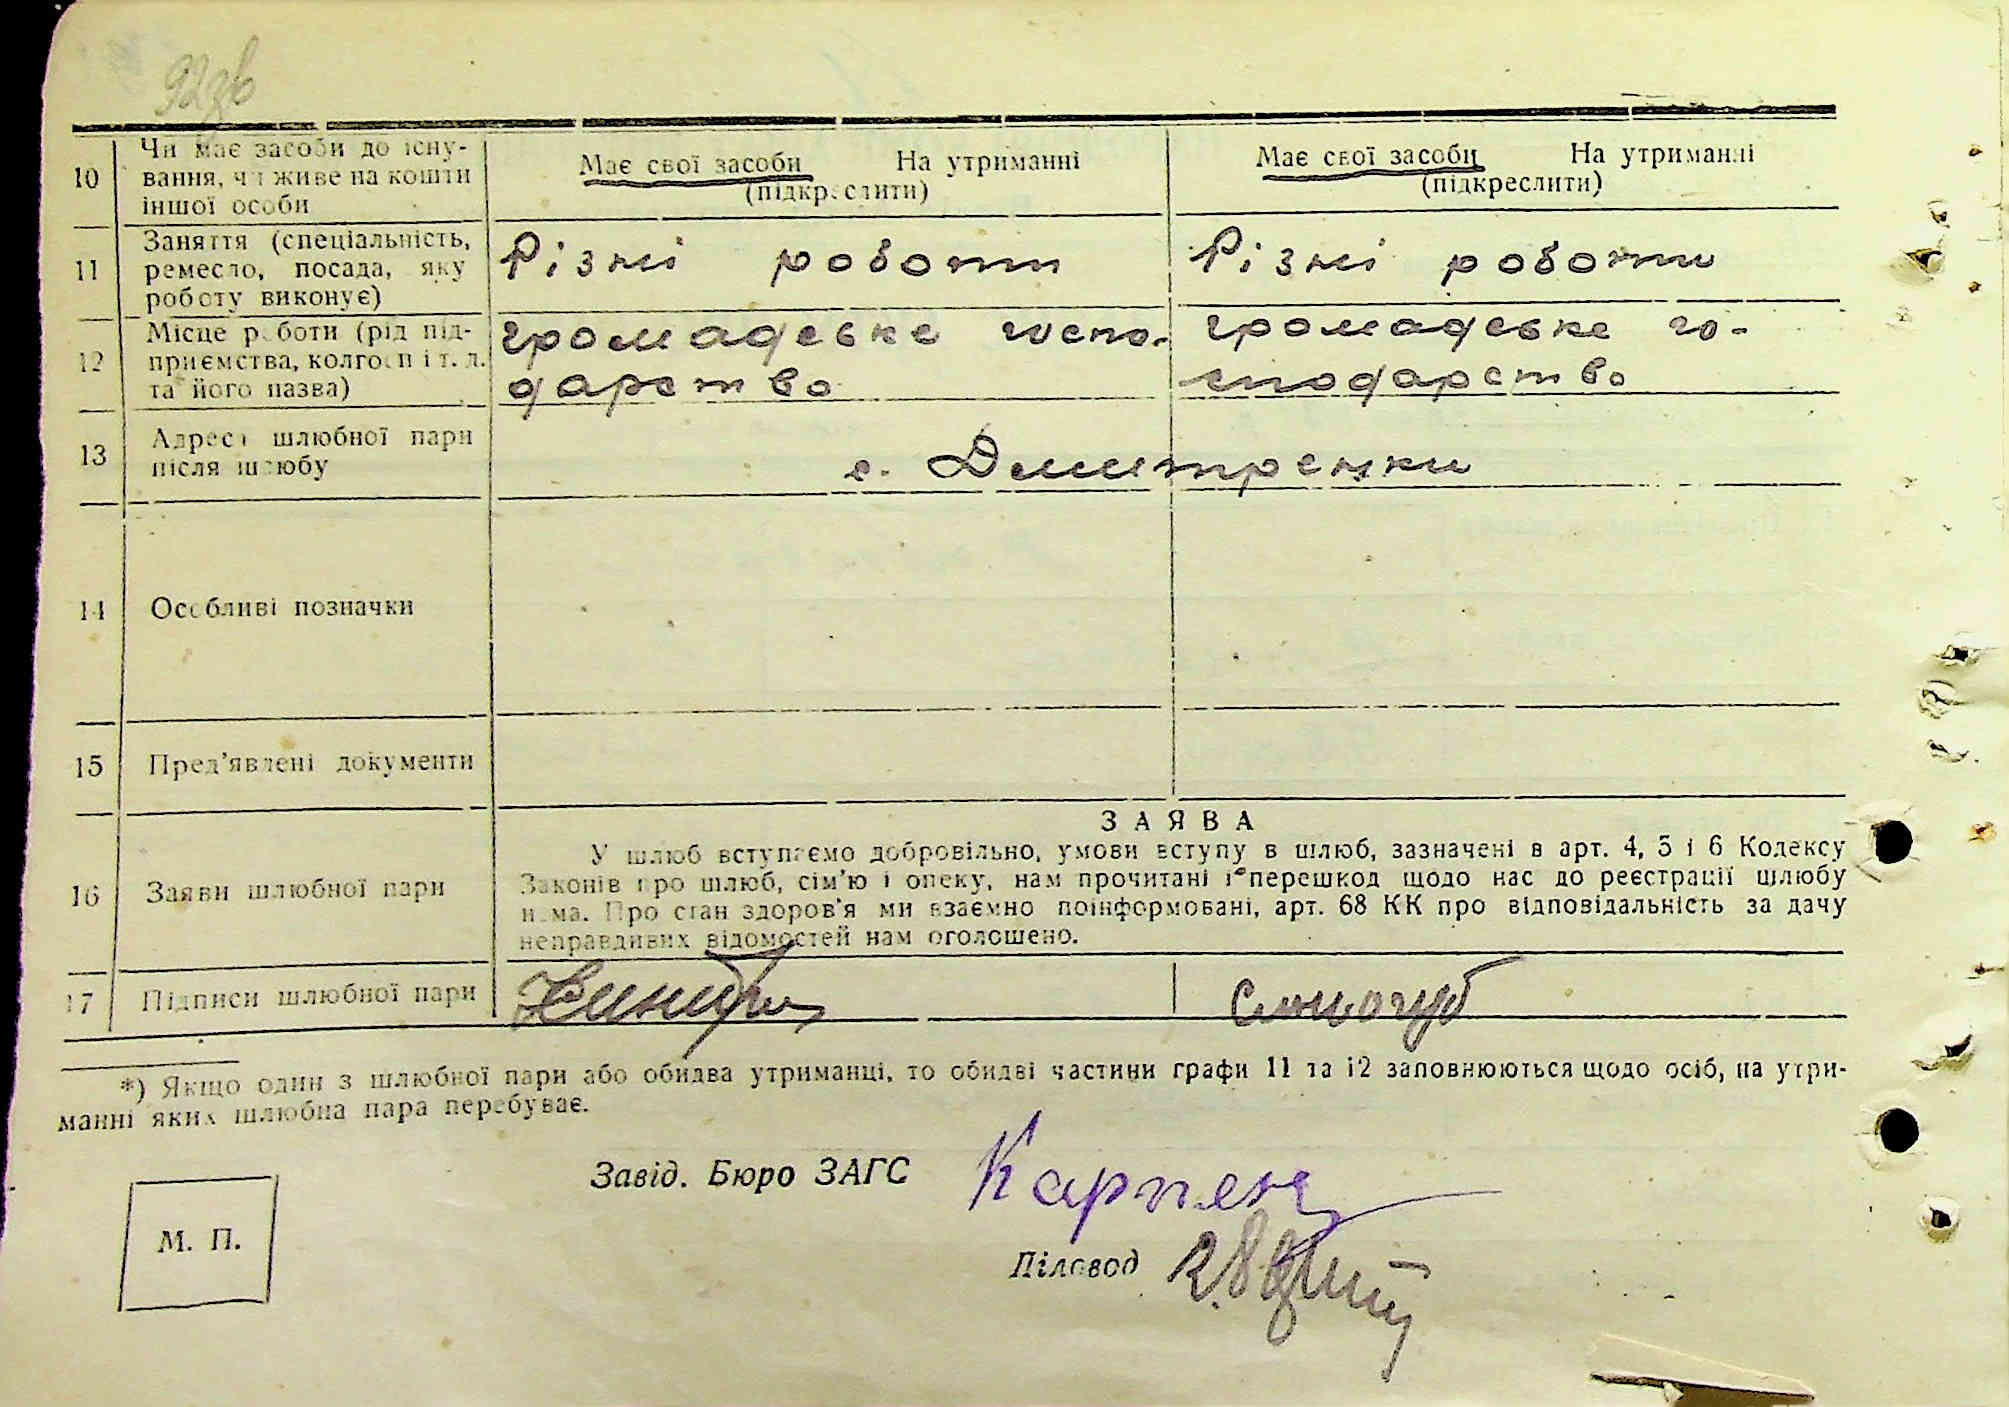 92зв
10 Чи має засоби до існу-
вання, чи живе на кошти
іншої особи
Має свої засоби На утриманні
(підкреслити)
Має свої засоби На утриманні
(підкреслити)
11 Заняття (спеціальність,
ремесло, посада, яку
роботу виконує)
Різні роботи
Різні роботи
12 Місце роботи (рід під-
приємства, колгосп і т. д.
та його назва)
громадське госпо-
дарство
громадське го-
сподарство
13 Адреса шлюбної пари
після шлюбу
с. Дмитренки
14 Особливі позначки
15 Пред'явлені документи
16 Заяви шлюбної пари
ЗАЯВА
У шлюб вступаємо добровільно, умови вступу в шлюб, зазначені в арт. 4, 5 і 6 Кодексу
Законів про шлюб, сім'ю і опеку, нам прочитані і перешкод щодо нас до реєстрації шлюбу
нема. Про стан здоров'я ми взаємно поінформовані, арт. 68 КК про відповідальність за дачу
неправдивих відомостей нам оголошено.
17 Підписи шлюбної пари
Синогуб
*) Якщо один з шлюбної пари або обидва утриманці, то обидві частини графи 11 та 12 заповнюються щодо осіб, на утри-
манні яких шлюбна пара перебуває.
Завід. Бюро ЗАГС Карпен
М. П.
Діловод